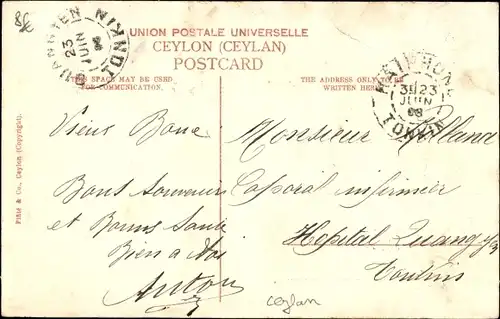 UNION POSTALE UNIVERSELLE
CEYLON (CEYLAN)
POSTCARD
THIS SPACE MAY BE USED
FOR COMMUNICATION.
THE ADDRESS ONLY TO BE
WRITTEN HERE
TONKIN
23
JUIN
HAIPHONG
23
JUIN
08
TONKIN
Plâté & Co., Ceylon (Copyright).
Vieux Bone
Bons Souvenirs
et Bonne Santé
Bien à toi
Anton
Monsieur Rolland
Caporal infirmier
Hopital Quang
Tonkin
ceylan